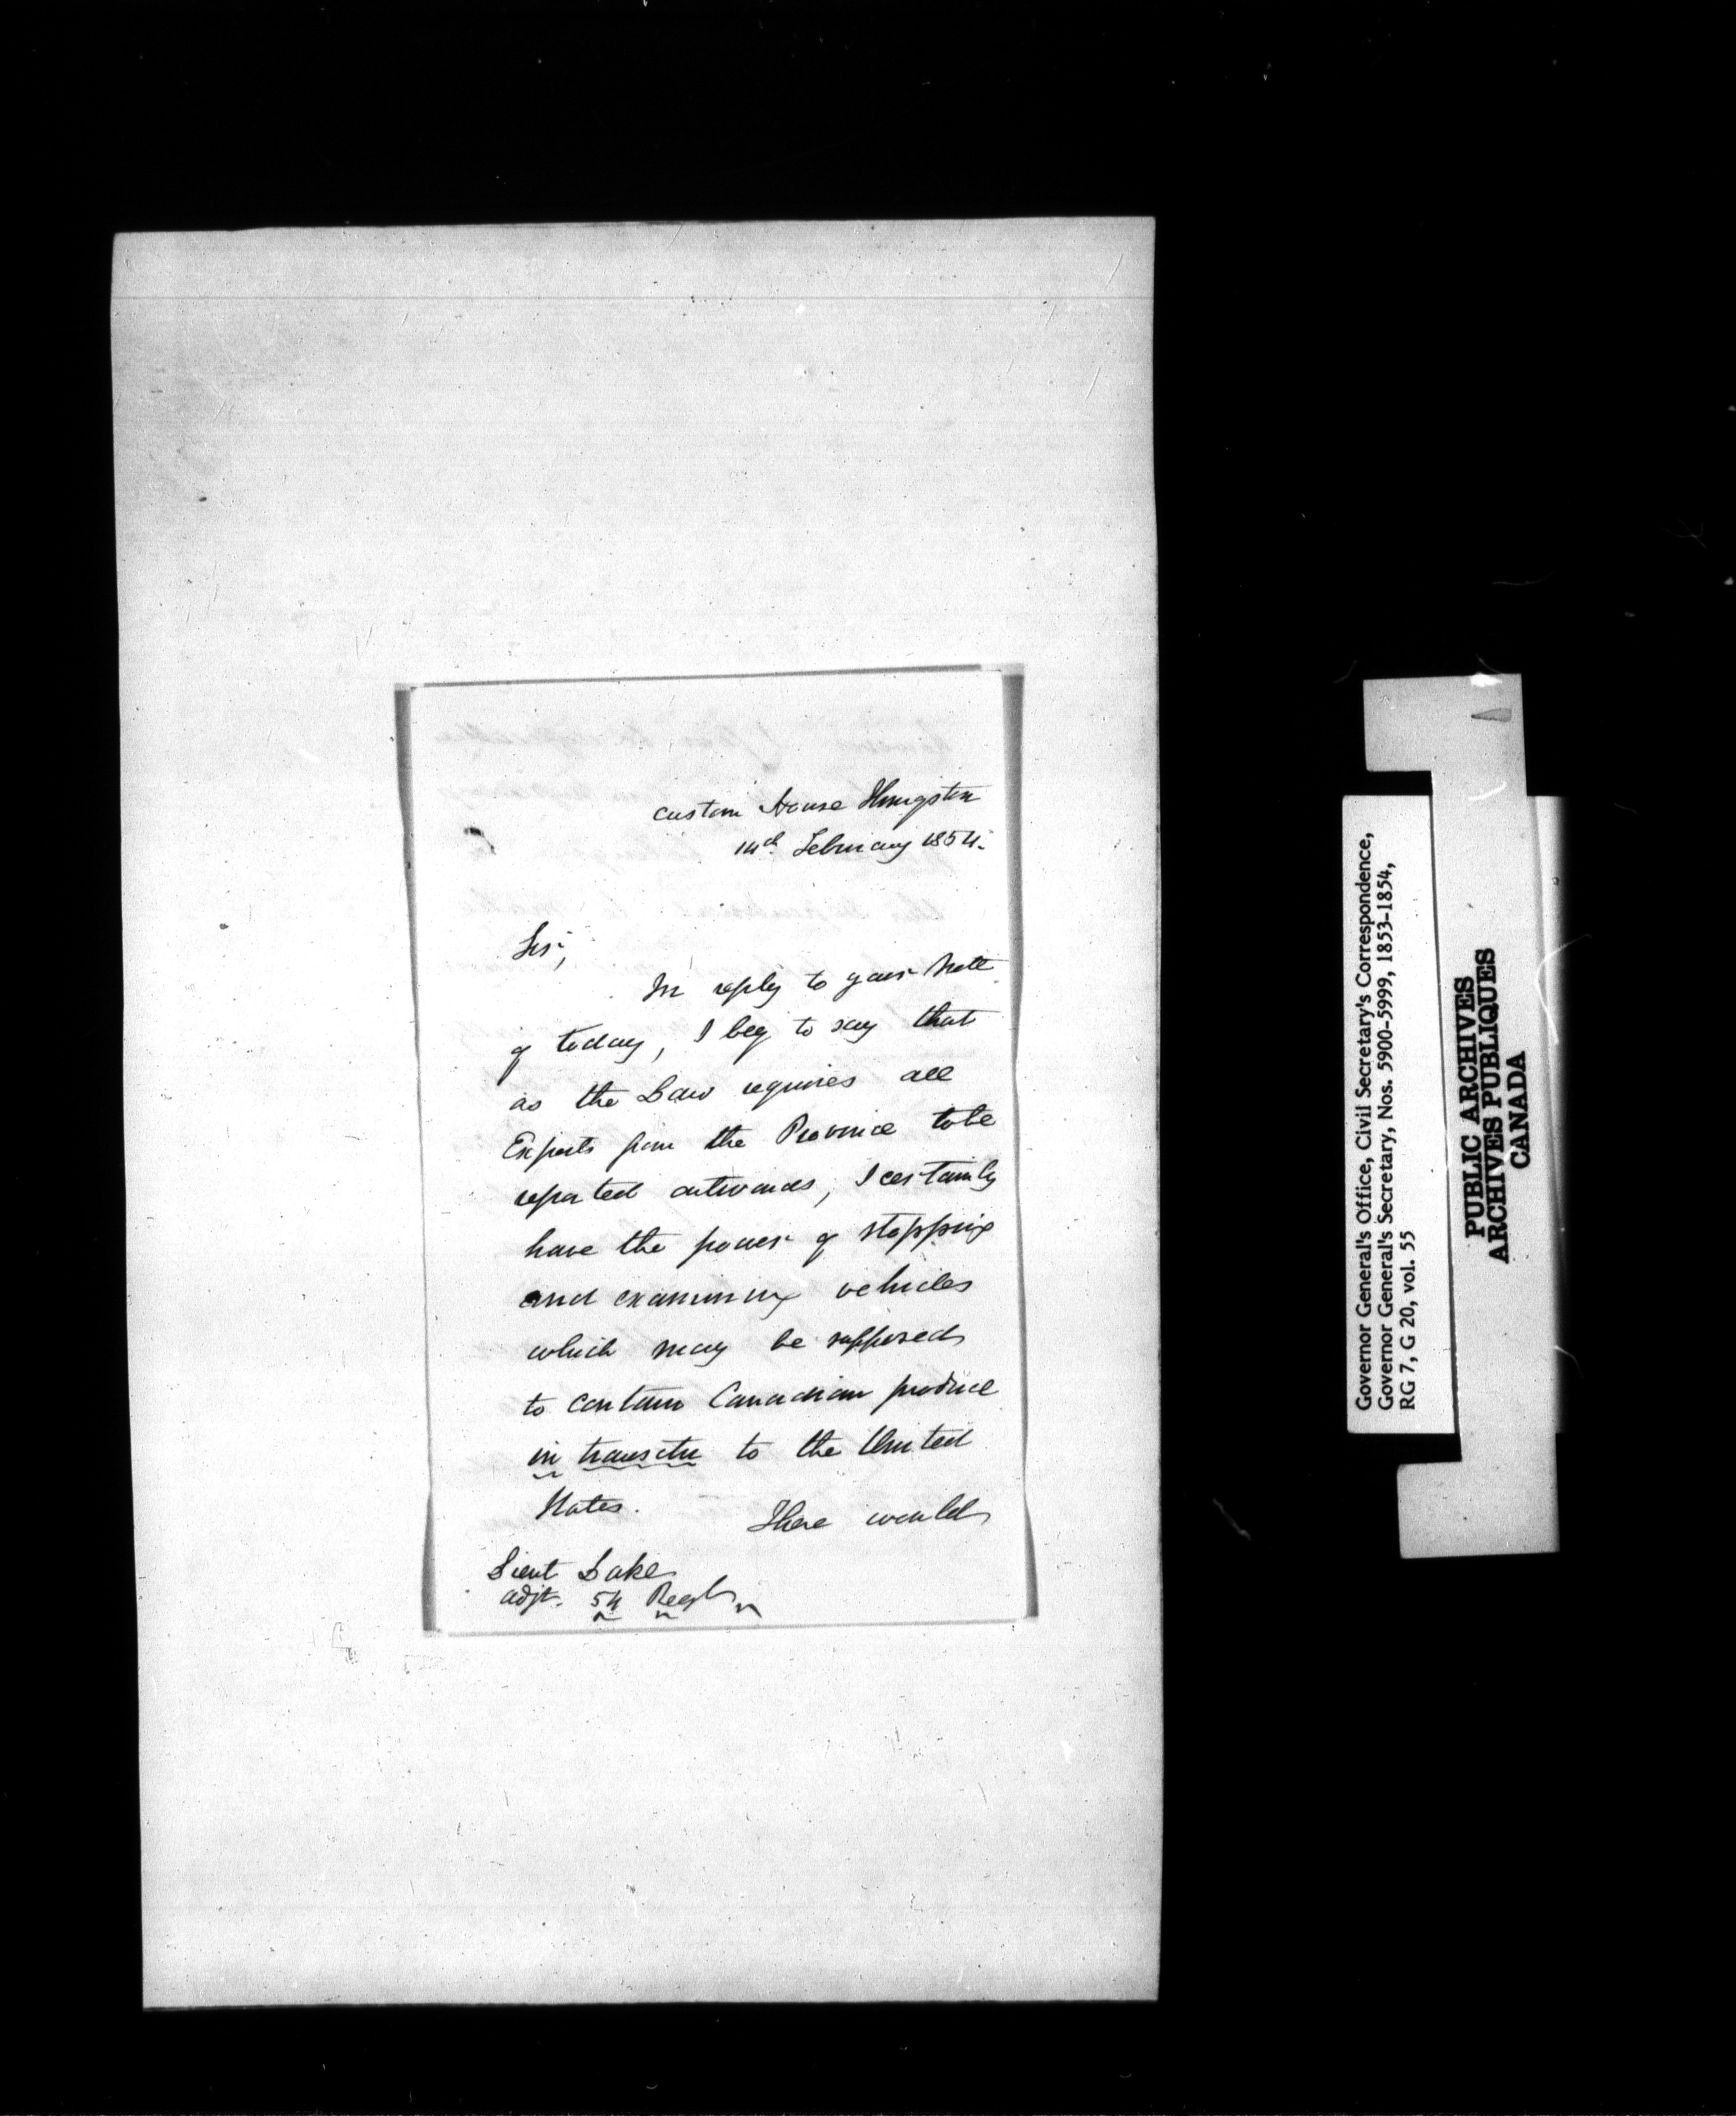 Custom House Kingston
14th February 1854.
Sir,
In reply to your note
of today, I beg to say that
as the Law requires all
Exports from the Province to be
reported outwards, I certainly
have the power of stopping
and examining vehicles
which may be supposed
to contain Canadian produce
in transitu to the United
States. There would
Lieut Lake
Adjt. 54 Regt
Governor General's Office, Civil Secretary's Correspondence,
Governor General's Secretary, Nos. 5900-5999, 1853-1854,
RG 7, G 20, vol. 55
PUBLIC ARCHIVES
ARCHIVES PUBLIQUES
CANADA